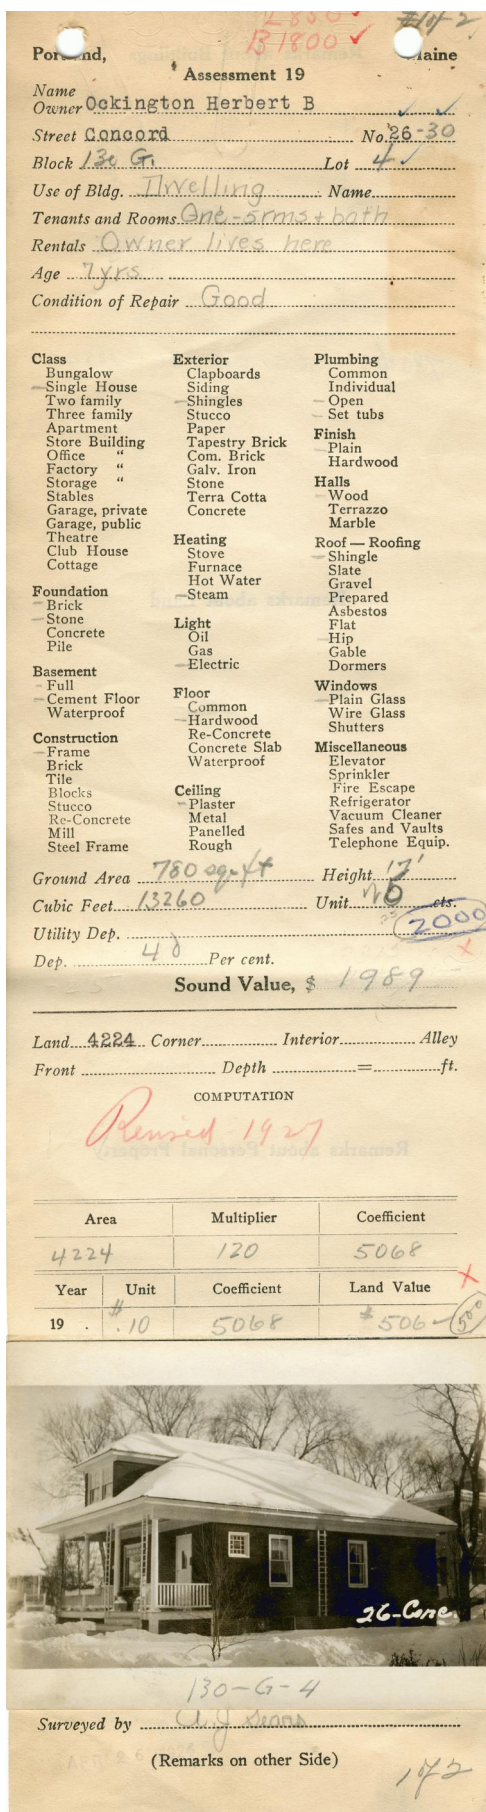 L 850 ✓ #1 of 2
B 1800 ✓
Portland, Maine
Assessment 19
Name
Owner Ockington Herbert B
Street Concord No. 26-30
Block 130 G. Lot 4
Use of Bldg. Dwelling Name
Tenants and Rooms One-5rms + bath
Rentals Owner lives here
Age 7 yrs
Condition of Repair Good
Class
Bungalow
Single House
Two family
Three family
Apartment
Store Building
Office "
Factory "
Storage "
Stables
Garage, private
Garage, public
Theatre
Club House
Cottage
Foundation
Brick
Stone
Concrete
Pile
Basement
Full
Cement Floor
Waterproof
Construction
Frame
Brick
Tile
Blocks
Stucco
Re-Concrete
Mill
Steel Frame
Exterior
Clapboards
Siding
Shingles
Stucco
Paper
Tapestry Brick
Com. Brick
Galv. Iron
Stone
Terra Cotta
Concrete
Heating
Stove
Furnace
Hot Water
Steam
Light
Oil
Gas
Electric
Floor
Common
Hardwood
Re-Concrete
Concrete Slab
Waterproof
Ceiling
Plaster
Metal
Panelled
Rough
Plumbing
Common
Individual
Open
Set tubs
Finish
Plain
Hardwood
Halls
Wood
Terrazzo
Marble
Roof — Roofing
Shingle
Slate
Gravel
Prepared
Asbestos
Flat
Hip
Gable
Dormers
Windows
Plain Glass
Wire Glass
Shutters
Miscellaneous
Elevator
Sprinkler
Fire Escape
Refrigerator
Vacuum Cleaner
Safes and Vaults
Telephone Equip.
Ground Area 780 sq. ft Height 17'
Cubic Feet 13260 Unit cts.
Utility Dep. 2000
Dep. 40 Per cent.
Sound Value, $ 1989
Land 4224 Corner Interior Alley
Front Depth = ft.
COMPUTATION
Revised 1927
Area Multiplier Coefficient
4224 120 5068
Year Unit Coefficient Land Value
19 . # .10 5068 $ 506- 500
26-Conc.
130-G-4
Surveyed by
(Remarks on other Side)
1 of 2